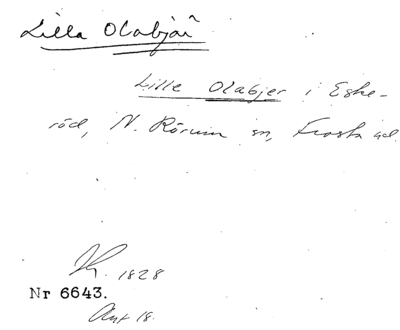 Lilla Olabjär
Lille Olabjer i Eske-
röd, N. Rörum sn, Frosta hd.
1828
Nr 6643.
18.